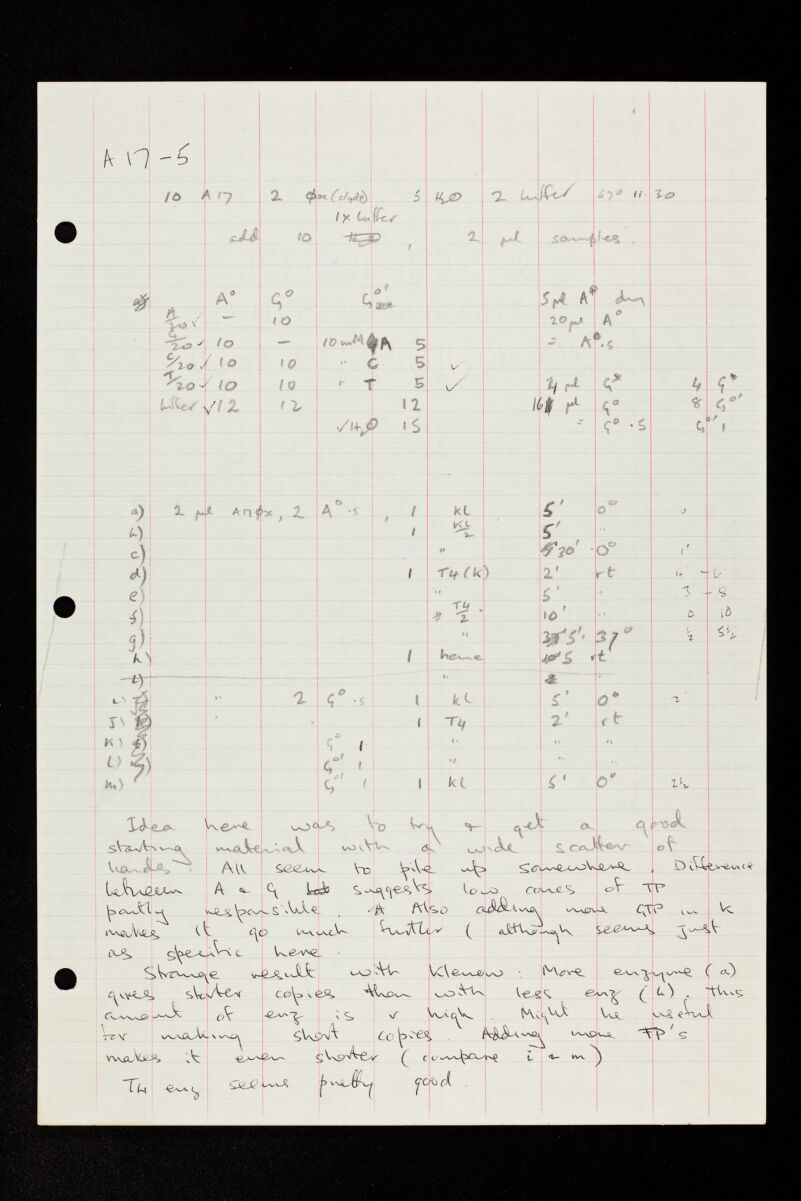 A 17 - 5
10 A17 2 φx (clyde) 5 H2O 2 buffer 67° 11.30
1x buffer
add 10 , 2 μl samples.
A° G° G°' 5 μl A* dry
A/20 ✓ - 10 20 μl A°
G/20 ✓ 10 - 10 mM A 5 = A°.5
C/20 ✓ 10 10 " C 5 ✓
T/20 ✓ 10 10 " T 5 ✓ 4 μl G* 4 G*
buffer ✓ 12 12 12 16 μl G° 8 G°'
✓ H2O 15 = G° .5 G°' 1
a) 2 μl A17φx, 2 A° .5 , 1 KL 5' 0°
b) 1 KL/2 5' "
c) " 30' 0° 1'
d) 1 T4 (K) 2' rt 4 - 6
e) " 5' " 3 - 8
f) " T4/2 10' " 0 10
g) " 5' 37° ½ 5½
h) 1 heme 5 rt
i) " 2 G° .5 1 KL 5' 0° 2'
J) " " 1 T4 2' rt
K) G° 1 " " "
L) G°' 1 " " "
m) G°' 1 1 KL 5' 0° 2½
Idea here was to try & get a good
starting material with a wide scatter of
bands. All seem to pile up somewhere. Difference
between A & G suggests low concs of TP
partly responsible. Also adding more GTP in K
makes it go much further ( although seems just
as specific here.
Strange result with Klenow : More enzyme (a)
gives shorter copies than with less enz (b). This
amount of enz is v high. Might be useful
for making short copies. Adding more TP's
makes it even shorter ( compare i & m )
T4 enz seems pretty good.